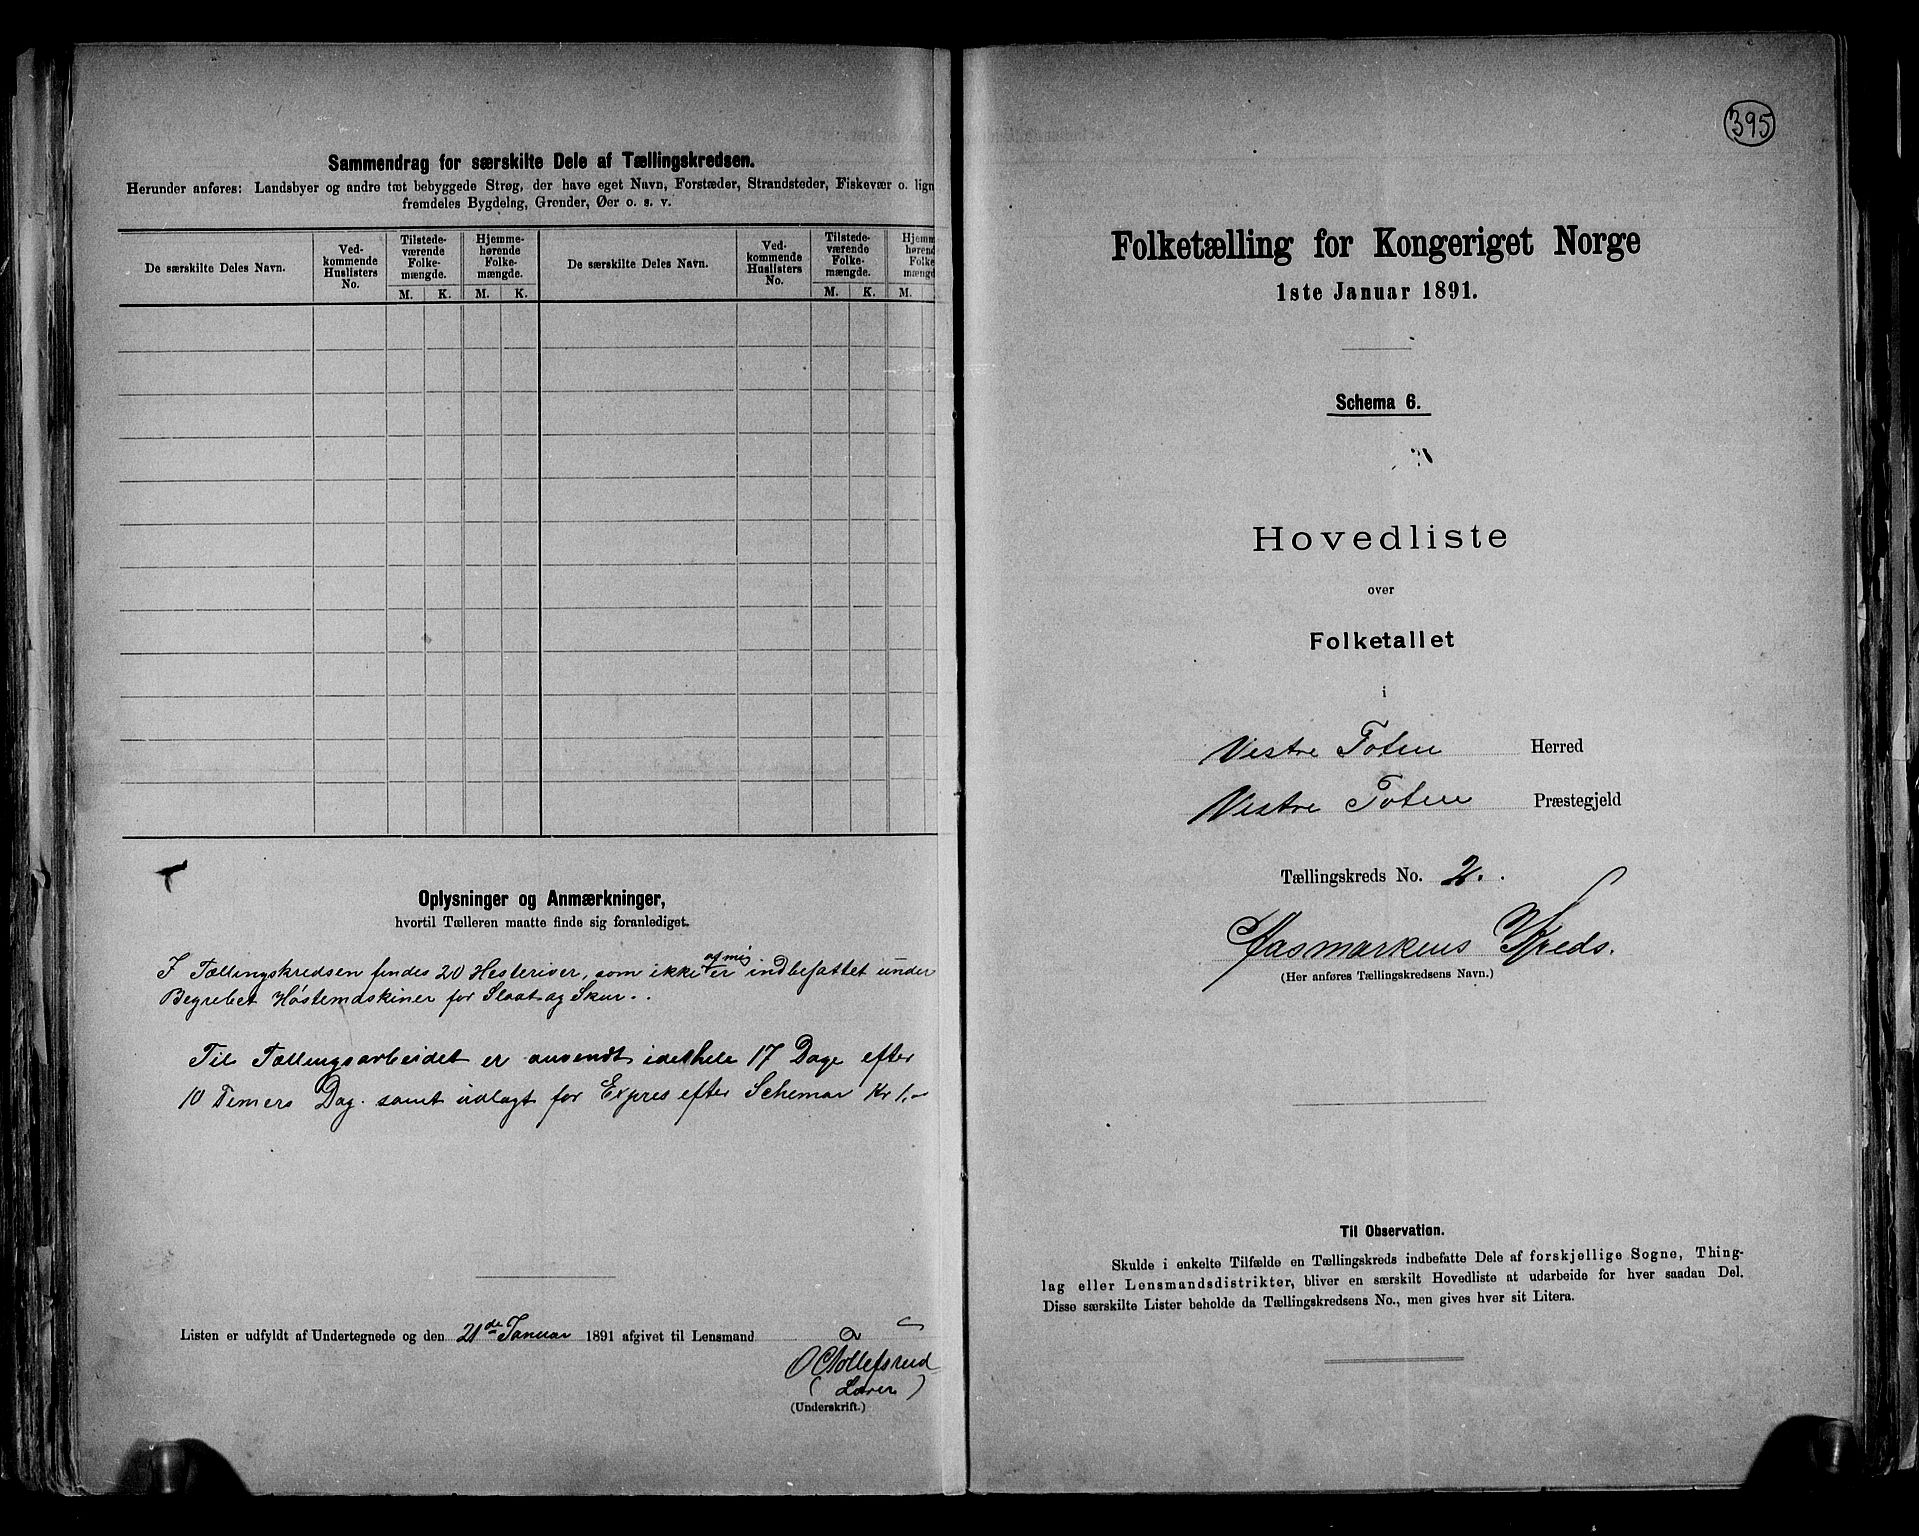 Sammendrag for særskilte Dele af Tællingskredsen.
Herunder anføres: Landsbyer og andre tæt bebyggede Strøg, der have eget Navn, Forstæder, Strandsteder, Fiskevær o. lign
fremdeles Bygdelag, Grender, Øer o. s. v.
De særskilte Deles Navn.
Ved-
kommende
Huslisters
No.
Tilstede-
værende
Folke-
mængde.
M. K.
Hjemme-
hørende
Folke-
mængde.
M. K.
De særskilte Deles Navn.
Ved-
kommende
Huslisters
No.
Tilstede-
værende
Folke-
mængde.
M. K.
Hjemm
hørend
Folke
mængd
M.
Oplysninger og Anmærkninger,
hvortil Tælleren maatte finde sig foranlediget.
af mig
I Tællingskredsen findes 20 Hesteriver, som ikke er indbefattet under
Begrebet Høstemaskiner for Slaat og Skur.
Til Tællingsarbeidet er anvendt idethele 17 Dage efter
10 Timers Dag. samt udlagt for Expres efter Schemar Kr 1.-
Listen er udfyldt af Undertegnede og den 21de Januar 1891 afgivet til Lensmand
O C Tollefsrud
( Lærer )
(Underskrift.)
395
Folketælling for Kongeriget Norge
1ste Januar 1891.
Schema 6.
Hovedliste
over
Folketallet
i
Vestre Toten Herred
Vestre Toten Præstegjeld
Tællingskreds No. 2.
Aasmarkens Kreds.
(Her anføres Tællingskredsens Navn.)
Til Observation.
Skulde i enkelte Tilfælde en Tællingskreds indbefatte Dele af forskjellige Sogne, Thing-
lag eller Lensmandsdistrikter, bliver en særskilt Hovedliste at udarbeide for hver saadan Del.
Disse særskilte Lister beholde da Tællingskredsens No., men gives hver sit Litera.